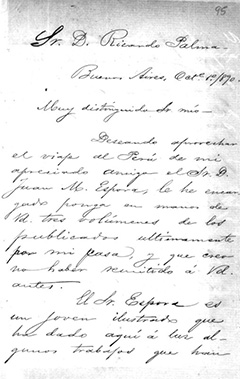 95
Sr. D. Ricardo Palma.
Buenos Aires, Oct.e 1º/890.-
Muy distinguido Sr. mío-
Deseando aprovechar
el viaje al Perú de mi
apreciado amigo el Sr. D.
Juan M. Espora, le he encar
gado ponga en manos de
Vd. tres volúmenes de los
publicados ultimamente
por mi casa, y que creo
no haber remitido á Vd.
antes.
El Sr. Espora es
un joven ilustrado que
ha dado aquí á luz al-
gunos trabajos que han